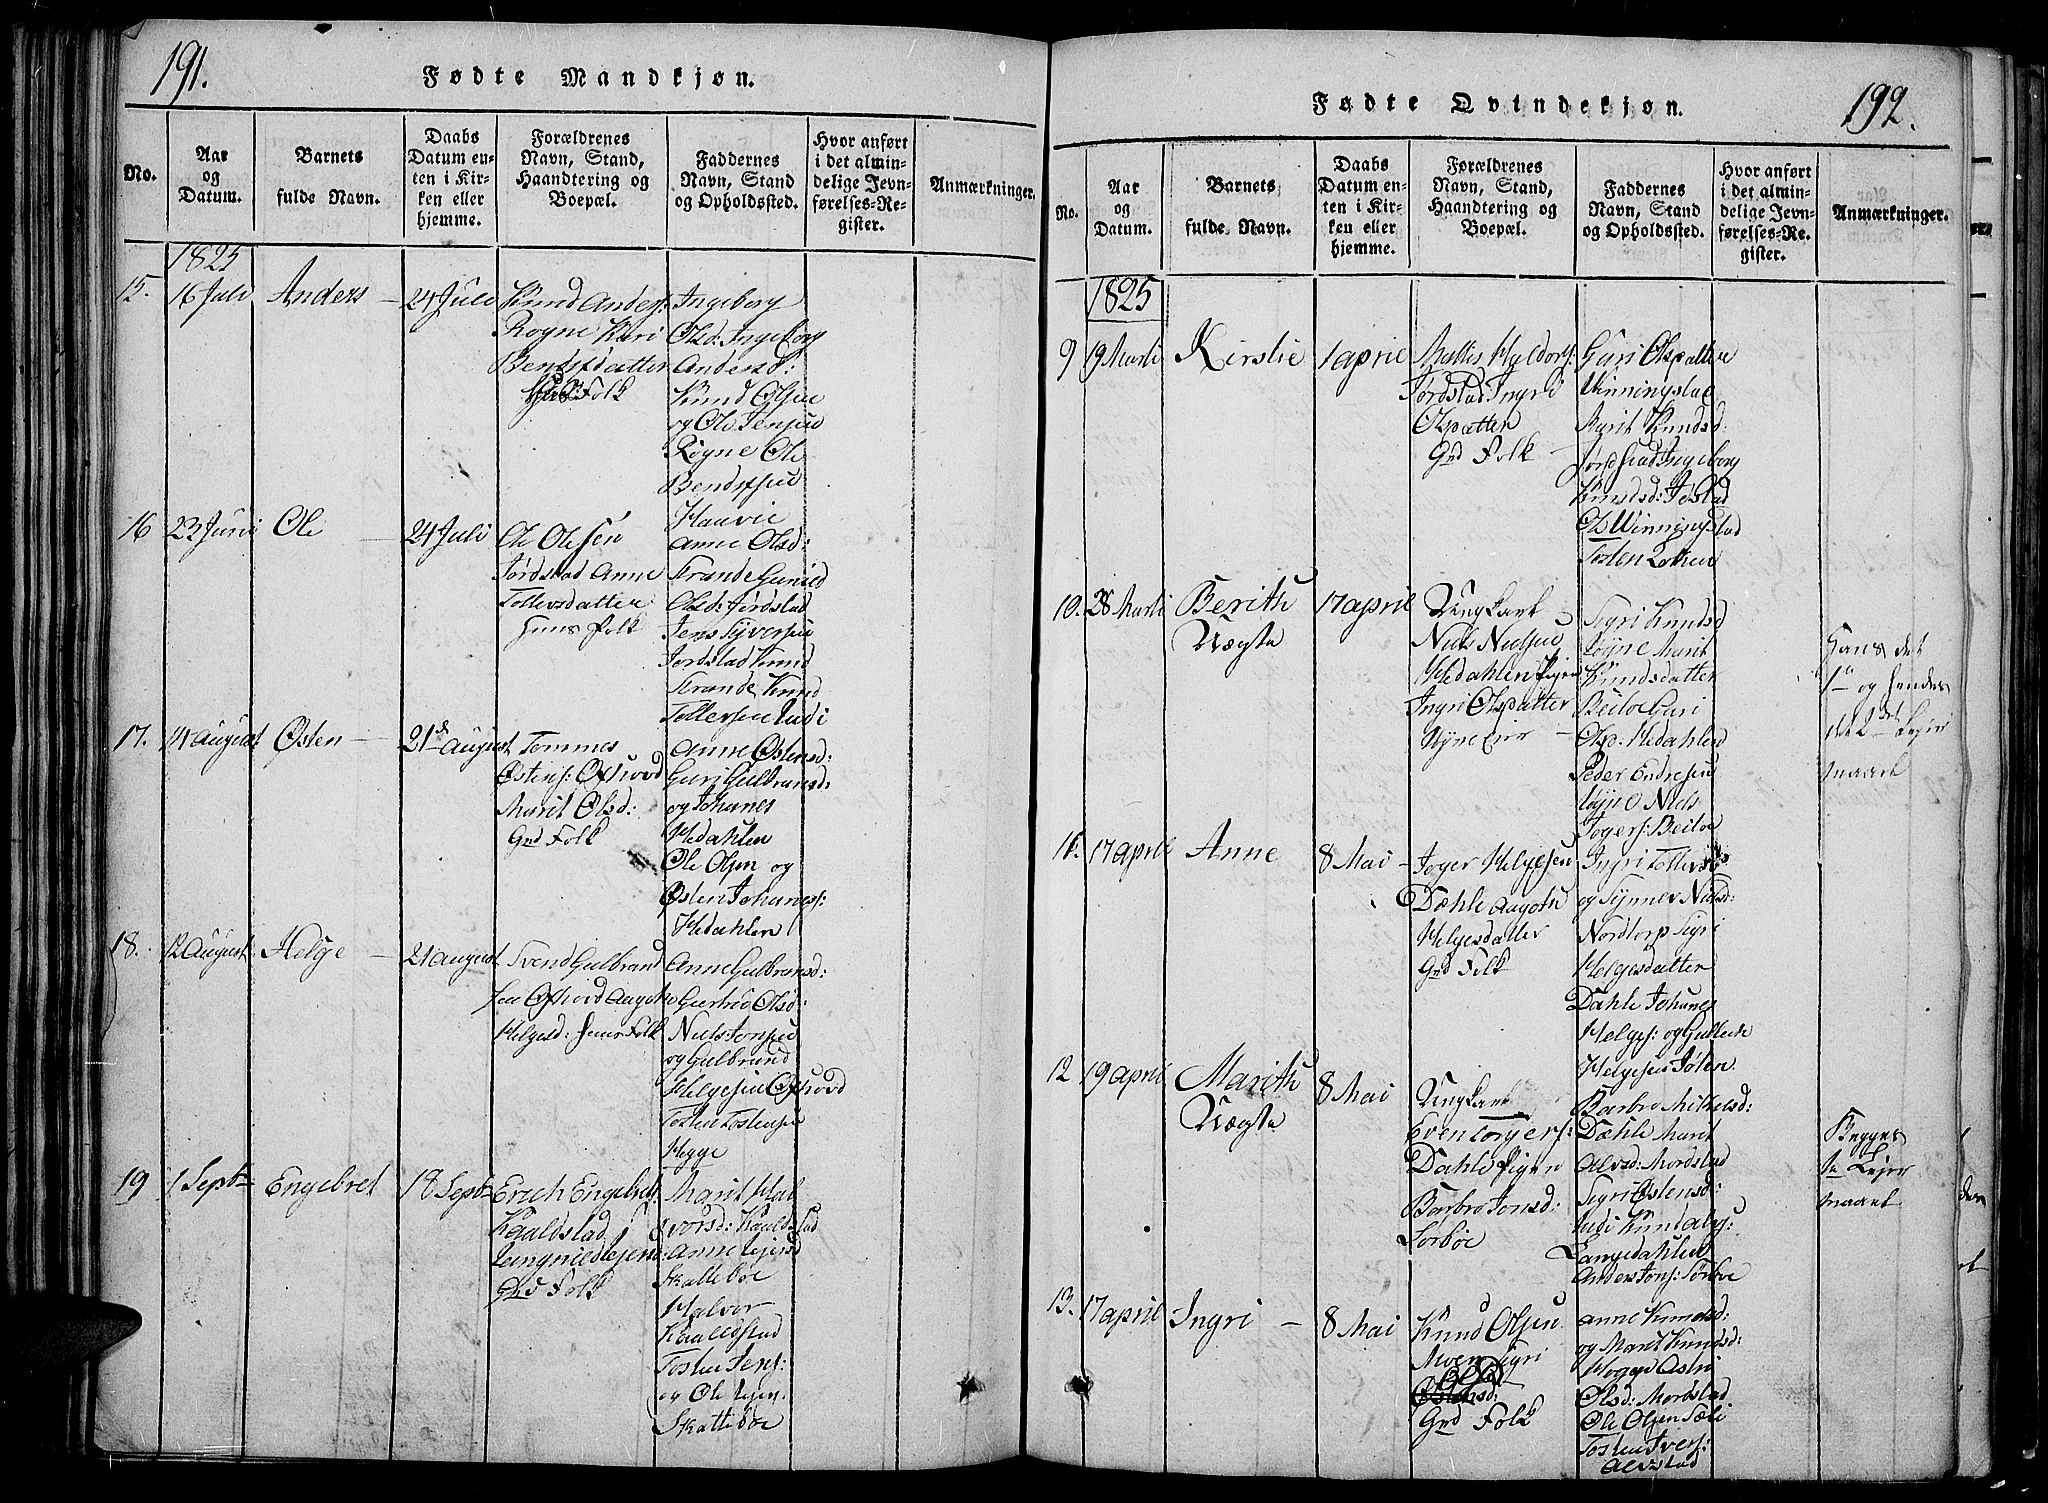 191.
Fødte Mandkjøn.
No.
Aar
og
Datum.
Barnets
fulde Navn.
Daabs
Datum en-
ten i Kir-
ken eller
hjemme.
Forældrenes
Navn, Stand,
Haandtering og
Boepæl.
Faddernes
Navn, Stand
og Opholdssted.
Hvor anført
i det almin-
delige Jevn-
førelses-Re-
gister.
Anmærkninger.
1825
15.
16 Juli
Anders
24 Juli
Knud Anders:
Rogne Kari
Bendixdatter
Folk
Ingeborg
Olsd: Ingeborg
Andersd:
Knud Olsen
og Ole Jensen
Rogne Ole
Bendixsen
Haavie
16
23 Juni
Ole
24 Juli
Ole Olesen
Jørdstad Anne
Tollevsdatter
Huus Folk
Anne Olsd:
Strande Gunild
Olsd: Jørdstad
Jens Syversen
Jørdstad Knud
Strande Knud
Tollefsen
17.
14 August
Østen
21 August
Tommes
Østens:
Marit Olsd:
Grd Folk
Anne Østensd:
Guri Gulbransd:
og Johanes
Hedahlen
Ole Olsen og
Østen Johanes:
Hedahlen
18.
12 August
Helge
21 August
Svend Gulbrand
sen Aagot
Helgesd: Huus Folk
Anne Gulbransd:
Giertrud Olsd:
Niels Jonsen
og Gulbrand
Helgesen
Tosten Tostensen
Hegge
19
1 Septbr
Engebret
18 Septbr
Erich Engebret
Kaaldstad
Grd Folk
Marit Hal
vorsd: Kaaldstad
Anne
Skattebøe
Halvor
Kaaldstad
Tosten Jens:
og Ole
Skattebøe
192.
Fødte Qvindekjøn.
No.
Aar
og
Datum.
Barnets
fulde Navn.
Daabs
Datum en-
ten i Kir-
ken eller
hjemme.
Forældrenes
Navn, Stand,
Haandtering og
Boepæl.
Faddernes
Navn, Stand
og Opholdssted.
Hvor anført
i det almin-
delige Jevn-
førelses-Re-
gister.
Anmærkninger.
1825
9
19 Marti
Kirstie
1 april
Mattis Haldors:
Jørdstad Ingri
Olsdatter
Grd Folk
Guri Olsdatter
Vinningstad
Marit Knudsd:
Jørdstad Ingeborg
Knudsd:
Ole Winningstad
Tosten Lothen
10.
28 Marti
Berith
Uægta
17 april
Ungkarl
Niels Nielsen
Hedahlen Pigen
Ingri Olsdatter
Sigri Knudsd
Løyne Marit
Knudsdatter
Beitoe Guri
Olsd: Hedahlen
Peder Endresen
Løyne Niels
Joger: Beitoe
Hans det
1te og hendes
det 2det Leier
maal
11.
17 april
Anne
8 Mai
Joger Helgesen
Dæhle Aagoth
Helgesdatter
Grd Folk
Ingri Tollevsd:
og Synnev Nielsd:
Nordtorp Sigri
Helgesdatter
Dahle Johanes
Helges: og Gulleik
Helgesen
12
19 april
Marith
Uægta
8 Mai
Ungkarl
Even Torgers:
Dahle Pigen
Barbro Jonsd:
Sørbøe
Barbro Mikelsd:
Dæhle Marit
Alvsd: Mordstad
Sigri Østensd:
Langedahlen
Anders Jons: Sørbøe
Begges
1te Leier
maal
13.
17 april
Ingri
8 Mai
Knud Olsen
Moen Sigri
Olsd
Grd Folk
Anne Knudsd:
og Marit Knudsd:
Hegge
Olsd: Mordstad
Ole Olsen
Tosten Ivers:
Alvstad